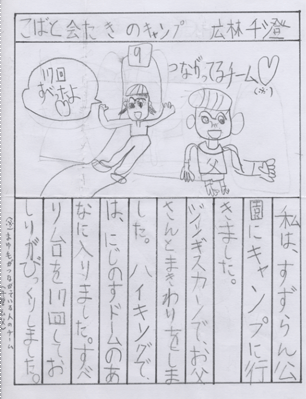 こばと会たきのキャンプ　広林千登
9
17回
すべったよ
つながってるチーム♡
父
私は、すずらん公
園にキャンプに行
きました。
ツイギスカーンで、お父
さんとまきわりをしま
した。ハイキングで、
は、にじのすドムのあ
なに入りました。すべ
り台を17回して、お
しりがびっくりしました。